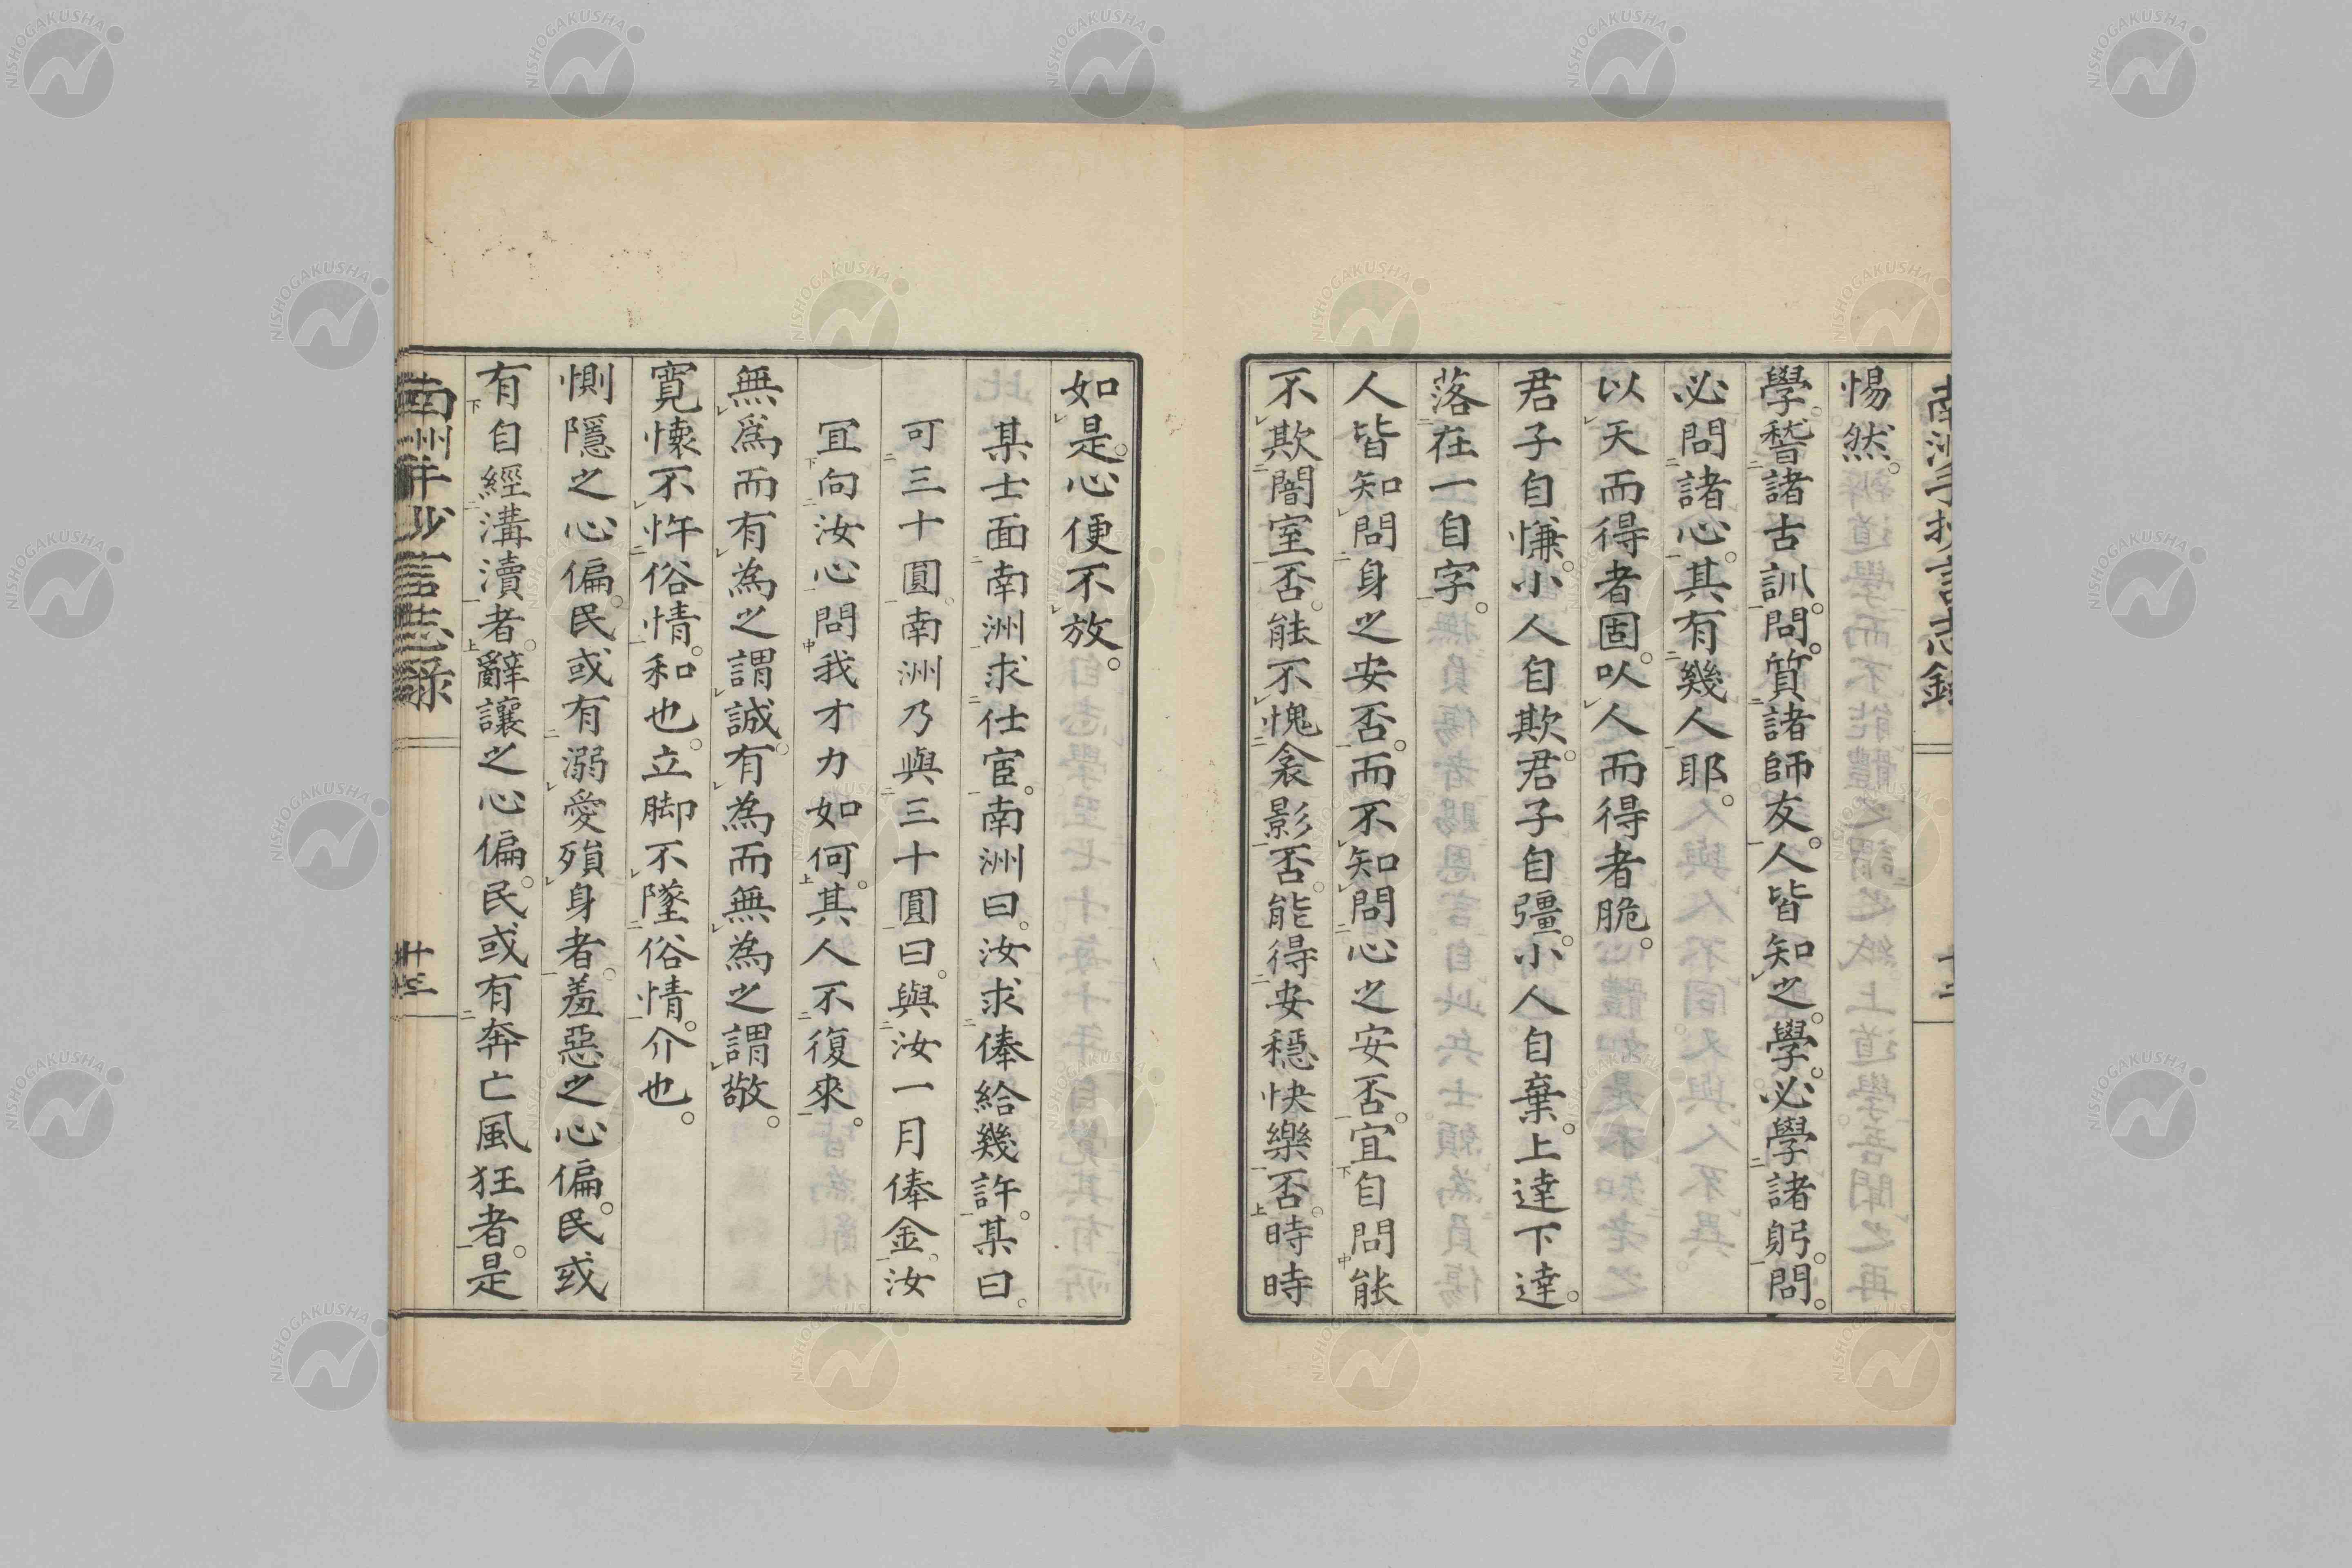 惕然。
學。稽諸古訓。問。質諸師友。人皆知之。學。必學諸躬。問。
必問諸心。其有幾人耶。
以天而得者固。以人而得者脆。
君子自慊。小人自欺。君子自彊。小人自棄。上達下達。
落在一自字。
人皆知問身之安否。而不知問心之安否。宜自問能
不欺闇室否。能不愧衾影否。能得安穩快樂否。時時
如是。心便不放。
某士面南洲求仕宦。南洲曰。汝求俸給幾許。某曰。
可三十圓。南洲乃與三十圓曰。與汝一月俸金。汝
宜向汝心問我才力如何。其人不復來。
無爲而有爲之謂誠。有爲而無爲之謂敬。
寬懷不忤俗情。和也。立脚不墜俗情。介也。
惻隱之心偏。民或有溺愛殞身者。羞惡之心偏。民或
有自經溝瀆者。辭讓之心偏。民或有奔亡風狂者。是
南洲手抄言志錄
十三
NISHOGAKUSHA